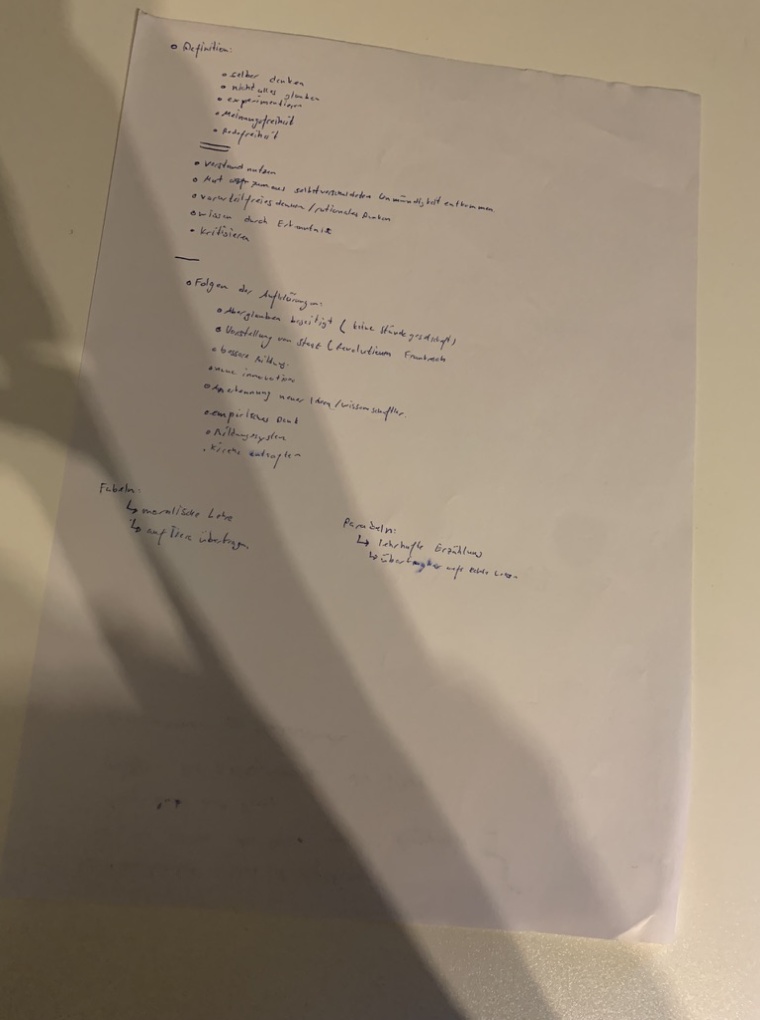 Definition:
selber denken
nicht alles glauben
experimentieren
Meinungsfreiheit
Redefreiheit
Verstand nutzen
Mut selbstverschuldeten Unmündigkeit entkommen
vorurteilfreies denken / rationales denken
wissen durch Erkenntnis
Kritisieren
Folgen der Aufklärung:
Aberglauben beseitigt (keine Ständegesellschaft)
Vorstellung von Staat (Revolution Frankreich
bessere Bildung
neue innovation
Anerkennung neuer Ideen / wissenschaftler
empirisches
Bildungssystem
Kirche
Fabeln:
↳ moralische Lehre
↳ auf Tiere übertragen
Parabeln:
↳ lehrhafte Erzählung
↳ übertragbar aufs